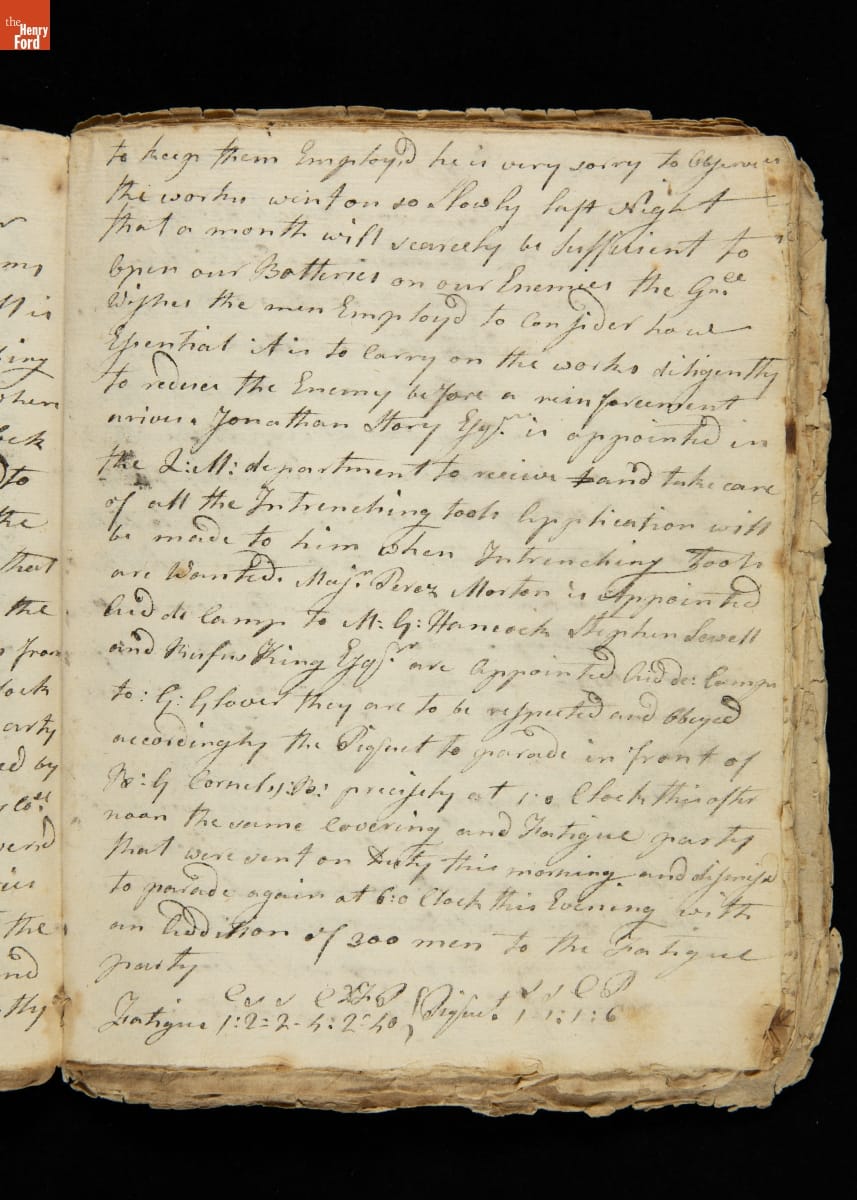 the
Henry
Ford
to keep them Employ'd he is very sorry to Observe
the works went on so Slowly last Night
that a month will scarcely be Sufficient to
open our Batteries on our Enemies the Gnell
Wishes the men Employ'd to Consider how
Essential it is to Carry on the works diligently
to reduce the Enemy before a reinforcement
arives. Jonathan Story Esqr. is appointed in
the Q: M: department to receive and take care
of all the Intrenching tools Application will
be made to him when Intrenching Tools
are Wanted. Majr. Perez Morton is Appointed
Aid de Camp to M: G: Hancock Stephen Sewell
and Rufus King Esqr. are Appointed Aid de: Camps
to: G: Glover they are to be respected and Obeyed
accordingly the Piquet to parade in front of
G Cornels: B: precisely at 1:0 Clock this after
noon the same Covering and Fatigue party
that were sent on Duty this morning and dismis'd
to parade again at 6:0 Clock this Evening with
an Addition of 300 men to the Fatigue
party
C s s C P s s C P
Fatigue 1:2=2-4:2:40 Piquet 1 1:1:6
my
is
ing
when
to
the
that
the
from
lock
arty
ed by
the
and